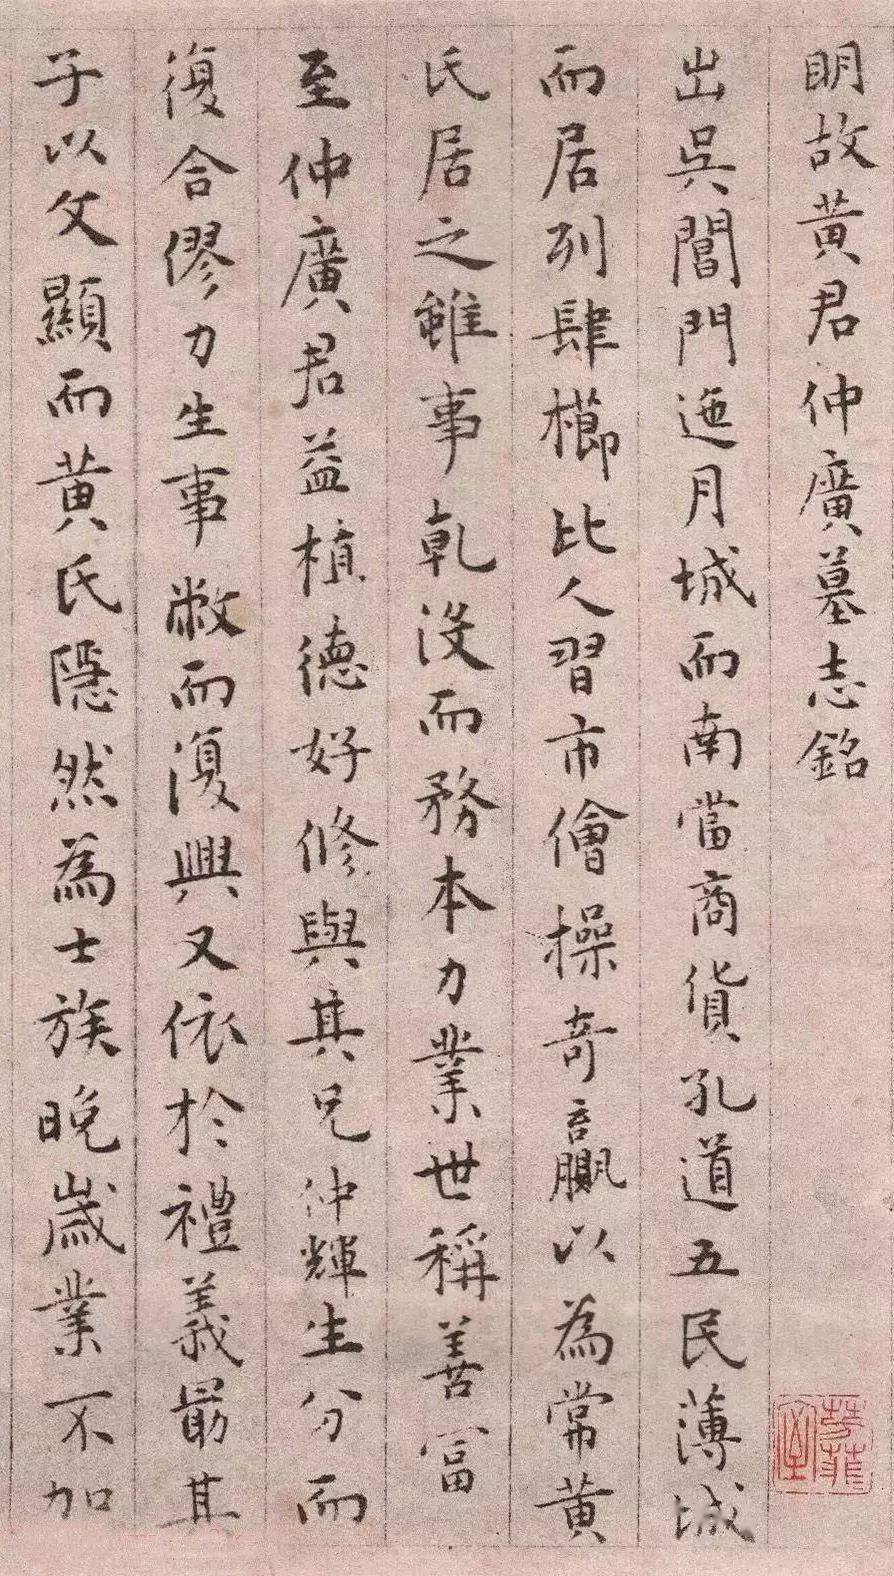 明故黄君仲廣墓志銘
出吳閶門迤月城而南當商貨孔道五民薄城
而居列肆櫛比人習市儈操奇贏以為常黄
氏居之雖事乾没而務本力業世稱善富
至仲廣君益植德好修與其兄仲輝生分而
復合僇力生事敝而復興又依於禮義最其
子以文顯而黄氏隱然為士族晚歲業不加